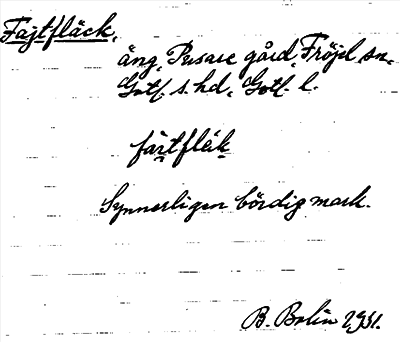 Fajtfläck,
äng, Pusarve gård, Fröjel sn.
Gotl. s. hd, Gotl. l.
fäi̯tfläk
Synnerligen bördig mark.
B. Bolin 1931.